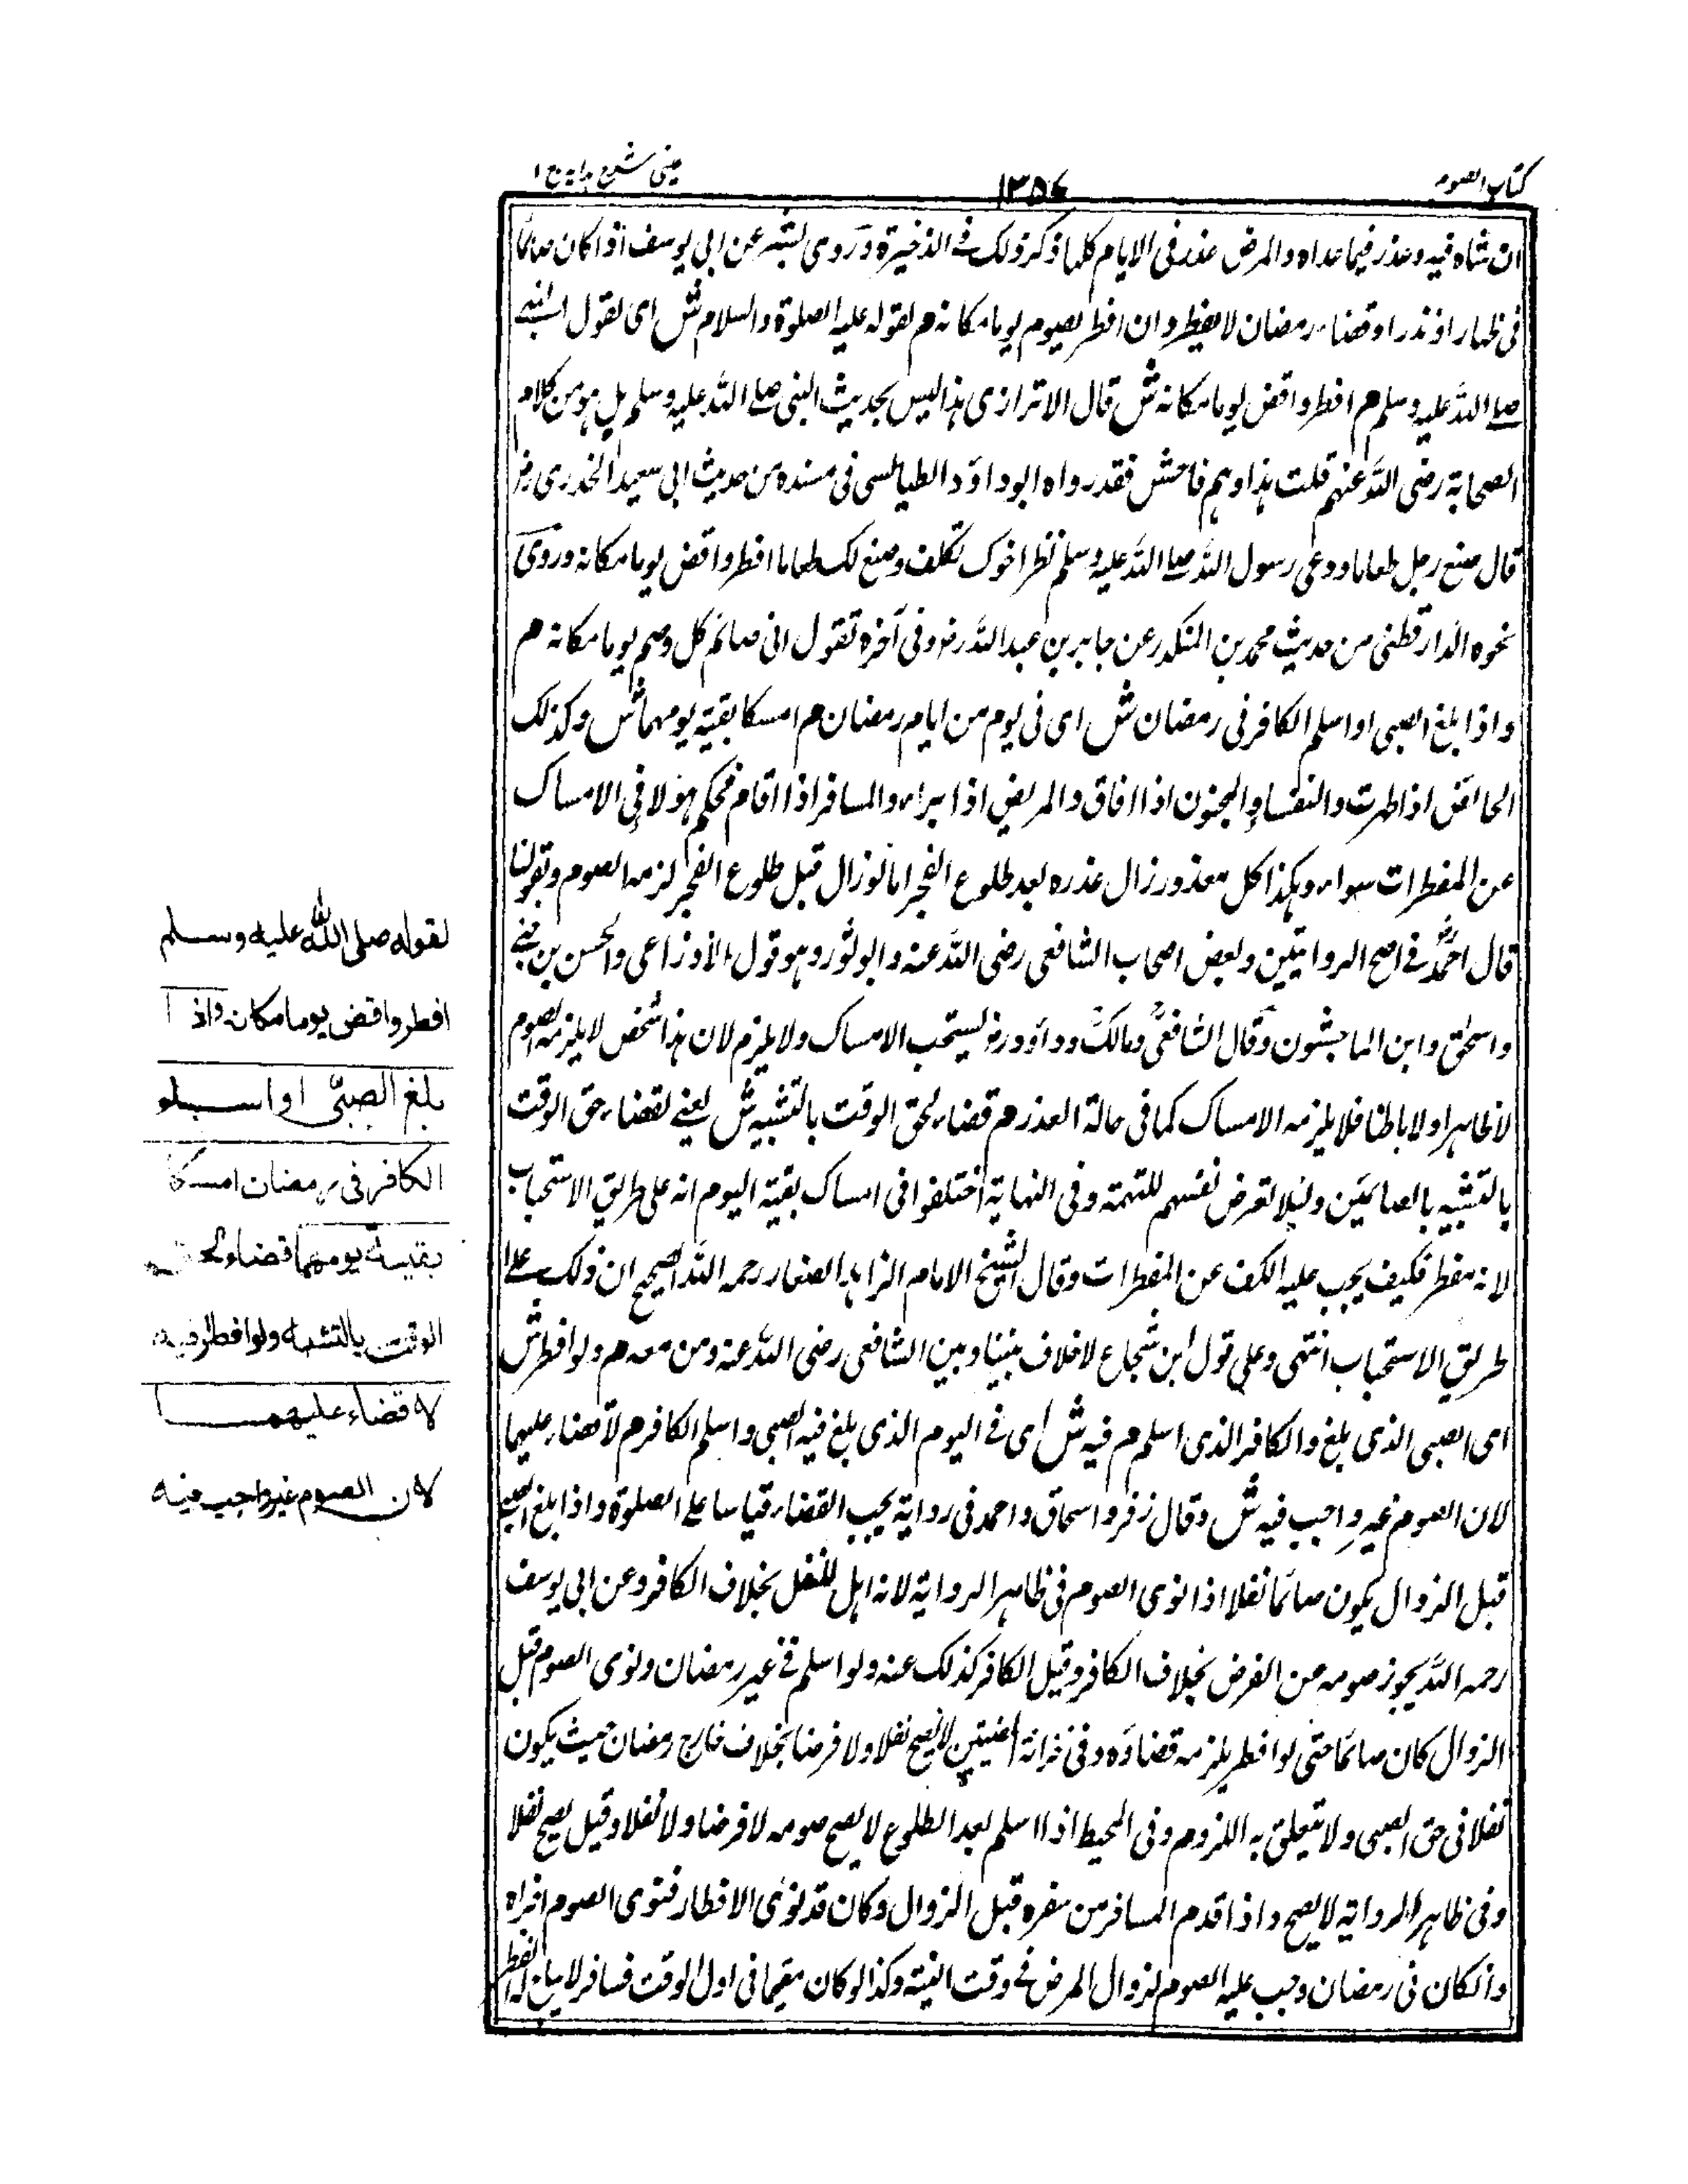 كتاب الصوم
١٣٥٤
عينى شرح هدايه ج ١
ان شاء فيه وعذر فيما عداه والمرض عذر فى الايام كلها ذكر ذلك فى الذخيرة وروى بشر عن ابى يوسف اذا كان صائما
فى ظهار او نذر او قضاء رمضان لا يفطر وان افطر يصوم يوما مكانه م لقوله عليه الصلوة والسلام ش اى لقول النبى
صلى الله عليه وسلم م افطر واقض يوما مكانه ش قال الاترازى هذا ليس بحديث النبى صلى الله عليه وسلم بل هو من كلام
الصحابة رضى الله عنهم قلت هذا وهم فاحش فقد رواه ابو داؤد الطيالسى فى مسنده من حديث ابى سعيد الخدرى رض
قال صنع رجل طعاما ودعى رسول الله صلى الله عليه وسلم نظر اخوك تكلف وصنع لك طعاما افطر واقض يوما مكانه وروى
نحوه الدارقطنى من حديث محمد بن المنكدر عن جابر بن عبد الله رض وفى آخره تقول انى صائم كل وصم يوما مكانه م
واذا بلغ الصبى او اسلم الكافر فى رمضان ش اى فى يوم من ايام رمضان م امسكا بقية يومهما ش وكذلك
الحائض اذا طهرت والنفساء والمجنون اذا افاق والمريض اذا براء والمسافر اذا اقام فحكم هؤلاء فى الامساك
عن المفطرات سواء وهكذا كل معذور زال عذره بعد طلوع الفجر اما لو زال قبل طلوع الفجر لزمه الصوم وبقولنا
قال احمد فى اصح الروايتين وبعض اصحاب الشافعى رضى الله عنه وابو ثور وهو قول الاوزاعى والحسن بن حى
واسحق وابن الماجشون وقال الشافعى ومالك وداؤد رض يستحب الامساك ولا يلزم لان هذا شخص لا يلزمه الصوم
لا ظاهرا ولا باطنا فلا يلزمه الامساك كما فى حالة العذر م قضاء لحق الوقت بالتشبيه ش يعنى لقضاء حق الوقت
بالتشبيه بالصائمين ولئلا تعرض نفسهم للتهمة وفى النهاية اختلفوا فى امساك بقية اليوم انه على طريق الاستحباب
لانه مفطر فكيف يجب عليه الكف عن المفطرات وقال الشيخ الامام الزاهد الصفار رحمه الله الصحيح ان ذلك على
طريق الاستحباب انتهى وعلى قول ابن شجاع لا خلاف بيننا وبين الشافعى رضى الله عنه ومن معه م ولو افطر ش
اى الصبى الذى بلغ والكافر الذى اسلم م فيه ش اى فى اليوم الذى بلغ فيه الصبى واسلم الكافر م لا قضاء عليهما
لان الصوم غير واجب فيه ش وقال زفر واسحاق واحمد فى رواية يجب القضاء قياسا على الصلوة واذا بلغ الصبى
قبل الزوال يكون صائما نفلا اذا نوى الصوم فى ظاهر الرواية لانه اهل للنفل بخلاف الكافر وعن ابى يوسف
رحمه الله يجوز صومه من الفرض بخلاف الكافر وقيل الكافر كذلك عنه ولو اسلم فى غير رمضان ونوى الصوم قبل
الزوال كان صائما حتى لو افطر يلزمه قضاؤه وفى خزانة المفتيين لا يصح نفلا ولا فرضا بخلاف خارج رمضان حيث يكون
نفلا فى حق الصبى ولا يتعلق به اللزوم وفى المحيط اذا اسلم بعد الطلوع لا يصح صومه لا فرضا ولا نفلا وقيل يصح نفلا
وفى ظاهر الرواية لا يصح واذا قدم المسافر من سفره قبل الزوال وكان قد نوى الافطار فنوى الصوم اجزاه
وانكان فى رمضان وجب عليه الصوم لزوال المرض فى وقت النية وكذا لو كان مقيما فى اول الوقت فسافر لا يباح له الفطر
لقوله صلى الله عليه وسلم
افطر واقض يوما مكانه واذا
بلغ الصبى او اسلم
الكافر فى رمضان امسكا
بقية يومهما قضاء لحق
الوقت بالتشبه ولو افطر فيه
لا قضاء عليهما
لان الصوم غير واجب فيه